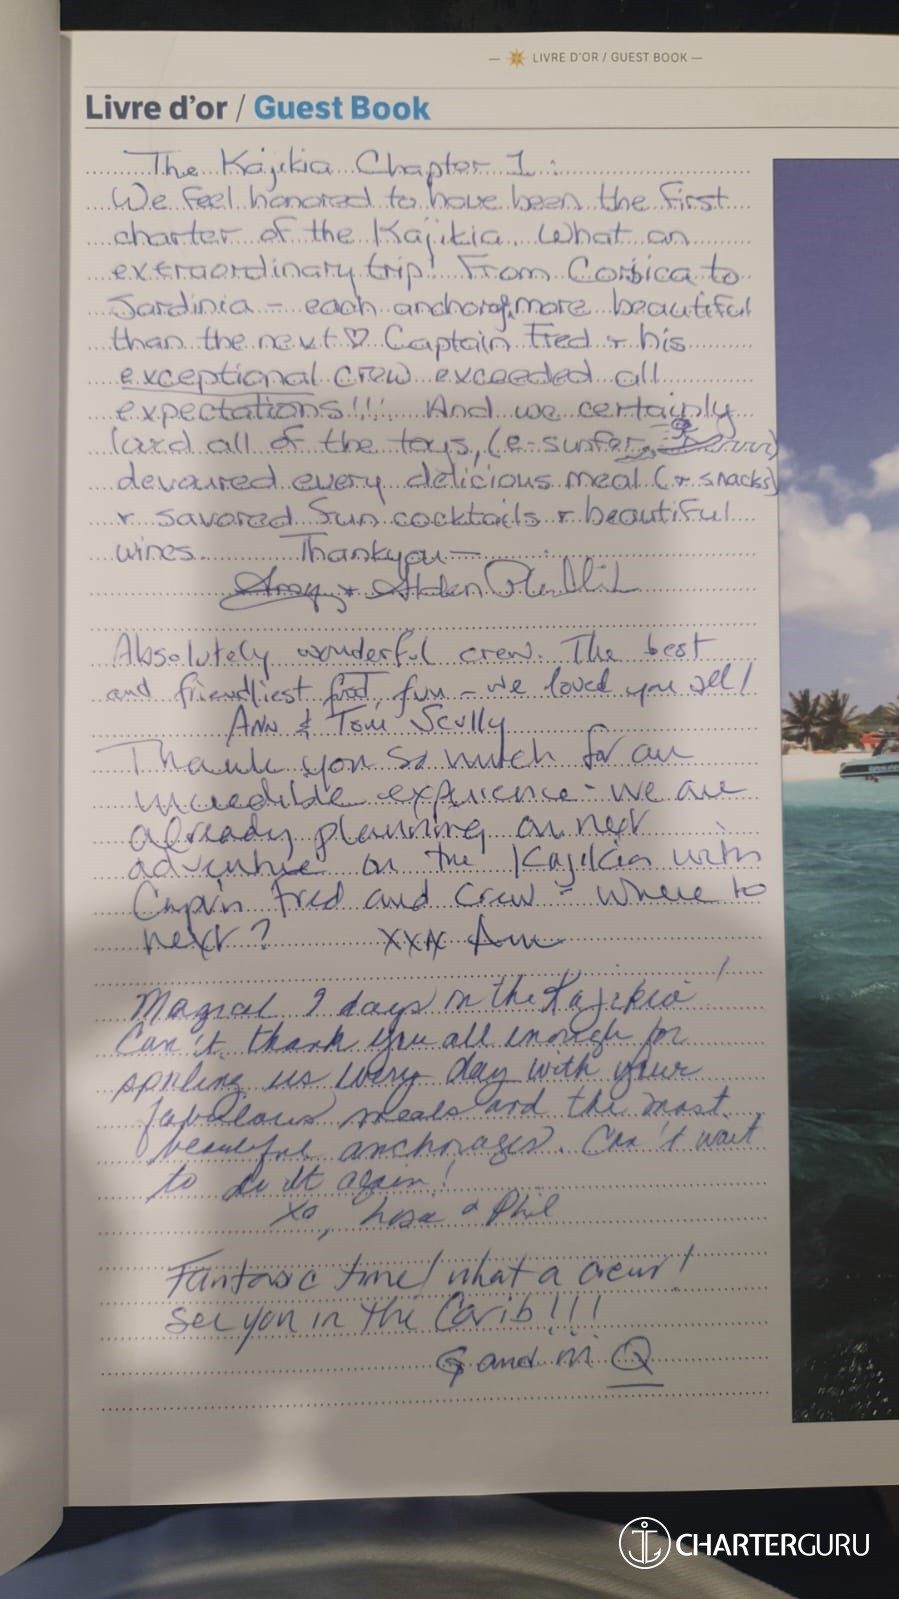 LIVRE D'OR / GUEST BOOK
Livre d'or / Guest Book
The Kajikia Chapter 1:
We feel honored to have been the first
charter of the Kajikia. What an
extraordinary trip! From Corsica to
Sardinia - each anchorage more beautiful
than the next ♡ Captain Fred + his
exceptional crew exceeded all
expectations!!! And we certainly
all of the toys, (e-surfer
devoured every delicious meal (+ snacks)
+ savored sun cocktails + beautiful
wines. Thankyou—
Absolutely wonderful crew. The best
and friendliest food, fun - we loved you all!
Ann & Tom Scully
Thank you so much for an
incredible experience - we are
already planning our next
adventure on the Kajikia with
Cap'n Fred and crew - where to
next? xxx
Magical 9 days on the Kajikia!
Can't thank you all enough for
spoiling us every day with your
fabulous meals and the most
beautiful anchorages. Can't wait
to do it again!
xo, Lisa & Phil
Fantasic time! what a crew!
see you in the Carib!!!
G and M Q
CHARTERGURU